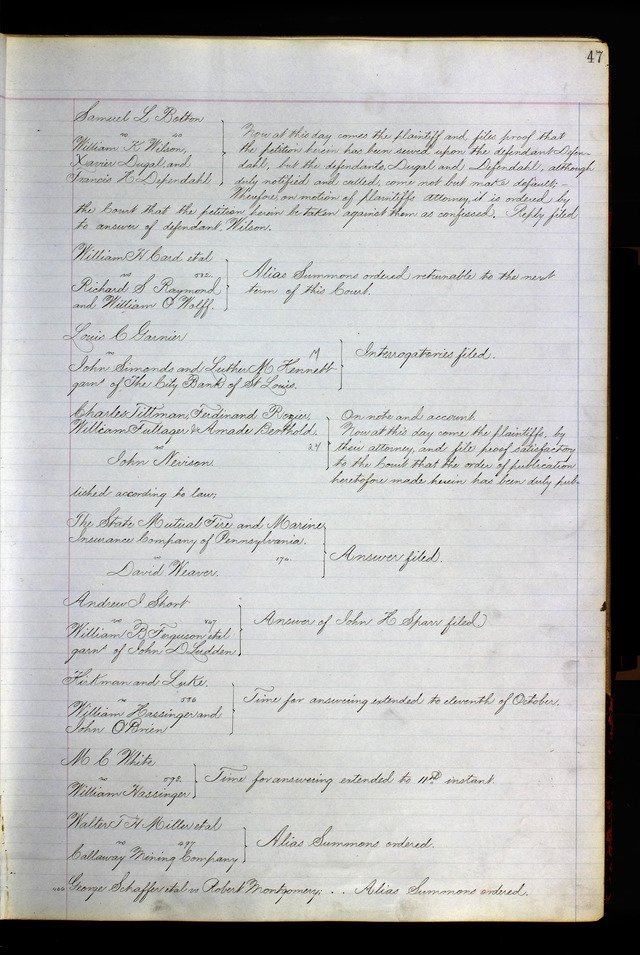 47
Samuel L Bolton
vs 40
William K Wilson,
Xavier Dugal, and
Francis H Defendahl
Now at this day comes the plaintiff and files proof that
the petition herein has been served upon the defendant Defen-
dahl, but the defendants, Dugal and Defendahl, although
duly notified and called, come not but make default; -
Wherefore, on motion of plaintiffs attorney, it is ordered by
the Court that the petition herein be taken against them as confessed. Reply filed
to answer of defendant, Wilson.
William H Card et al
vs 582.
Richard S Raymond
and William O Wolff.
Alias Summons ordered returnable to the next
term of this Court.
Louis C Garnier
vs 19
John Simonds and Luther M Kennett
garnt of The City Bank of St Louis.
Interrogatories filed.
Charles Tillman, Ferdinand Rozier,
William Tuttager & Amade Berthold.
vs 24
John Nevison.
On note and account.
Now at this day come the plaintiffs, by
their attorney, and file proof satisfactory
to the Court that the order of publication
heretofore made herein has been duly pub-
lished according to law;
The State Mutual Fire and Marine
Insurance Company of Pennsylvania.
vs 170.
David Weaver.
Answer filed.
Andrew J Short
vs 407
William B Ferguson et al
garnt of John D Ludden
Answer of John H Sparr filed
Kirkman and Luke.
vs 556
William Hassinger and
John O'Brien
Time for answering extended to eleventh of October.
M C White
vs 598.
William Hassinger
Time for answering extended to 11th instant.
Walter T H Miller et al
vs 497
Callaway Mining Company
Alias Summons ordered.
George Schaffer et al vs Robert Montgomery; . . Alias Summons ordered.